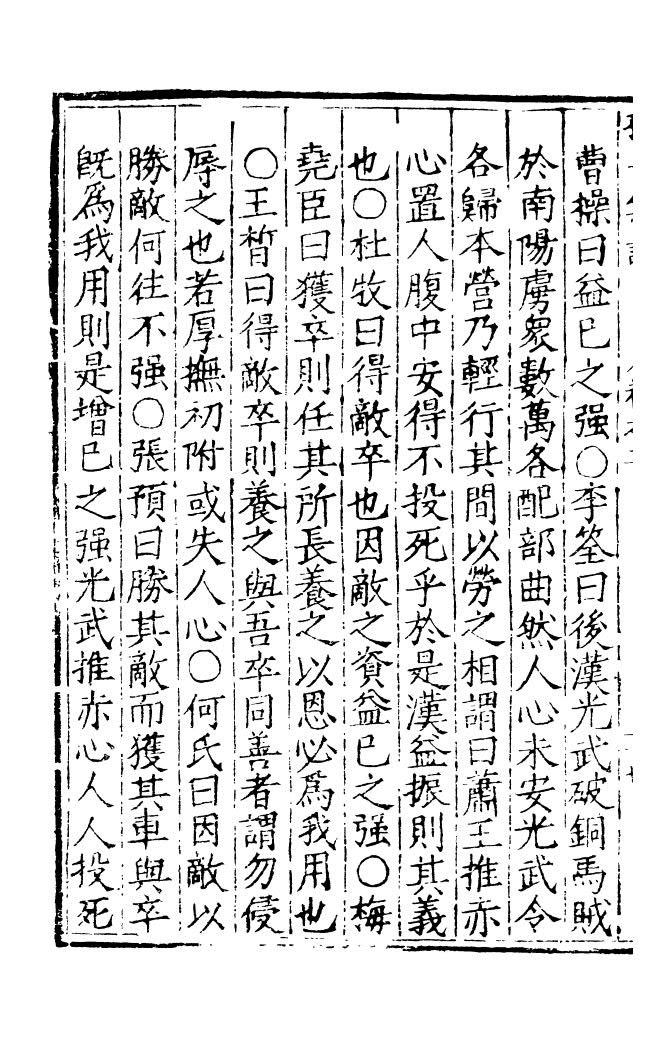 曹操曰益已之强○李筌曰後漢光武破銅馬賊
於南陽虜衆數萬各配部曲然人心未安光武令
各歸本營乃輕行其間以勞之相謂曰蕭王推赤
心置人腹中安得不投死乎於是漢益振則其義
也○杜牧曰得敵卒也因敵之資益已之强○梅
堯臣曰獲卒則任其所長養之以恩必爲我用也
○王晳曰得敵卒則養之與吾卒同善者謂勿侵
辱之也若厚撫初附或失人心○何氏曰因敵以
勝敵何往不强○張預曰勝其敵而獲其車與卒
既爲我用則是增已之强光武推赤心人人投死